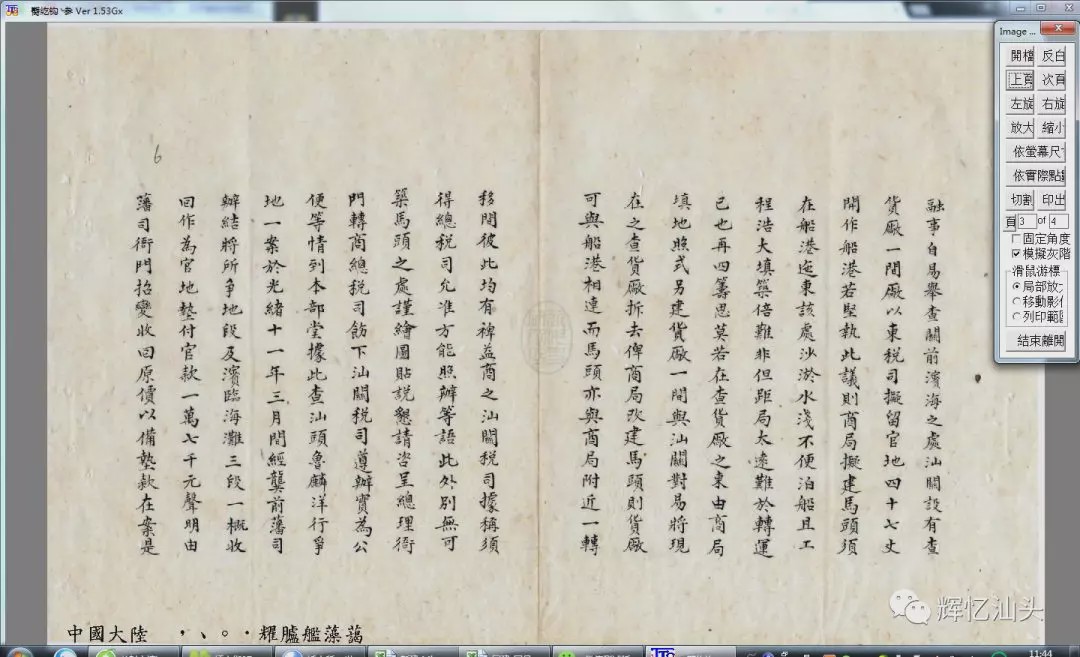 Ver 1.53Gx
Image ...
開檔 反白
上頁 次頁
左旋 右旋
放大 縮小
依螢幕尺寸
依實際點
切割 印出
頁 3 of 4
固定角度
模擬灰階
滑鼠游標
局部放
移動影
列印範
結束離開
融事自易舉查關前濱海之處汕關設有查
貨廠一間廠以東稅司擬留官地四十七丈
開作船港若堅執此議則商局擬建馬頭須
在船港迤東該處沙淤水淺不便泊船且工
程浩大填築倍難非但距局太遠難於轉運
已也再四籌思莫若在查貨廠之東由商局
填地照式另建貨廠一間與汕關對易將現
在之查貨廠拆去俾商局改建馬頭則貨廠
可與船港相連而馬頭亦與商局附近一轉
移間彼此均有裨益商之汕關稅司據稱須
得總稅司允准方能照辦等語此外別無可
築馬頭之處謹繪圖貼說懇請咨呈總理衙
門轉商總稅司飭下汕關稅司遵辦實為公
便等情到本部堂據此查汕頭魯麟洋行爭
地一案於光緒十一年三月間經龔前藩司
辦結將所爭地段及濱臨海灘三段一概收
回作為官地墊付官款一萬七千元聲明由
藩司衙門招變收回原價以備墊款在案是
6
辉忆汕头
中國大陸 ，、。．耀臚艦藻藹
11:44